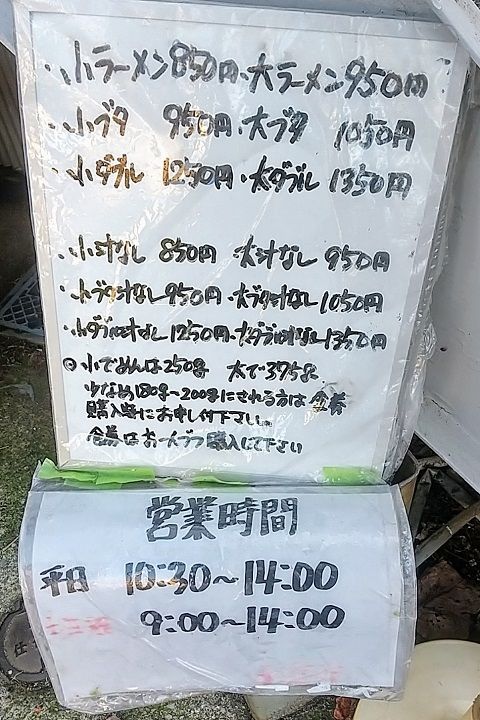 ・小ラーメン850円・大ラーメン950円
・小ブタ 950円・大ブタ 1050円
・小ダブル 1250円・大ダブル 1350円
・小汁なし 850円・大汁なし 950円
・小ブタ汁なし950円・大ブタ汁なし1050円
・小ダブル汁なし1250円・大ダブル汁なし1350円
◎小でめんは250g 大で375g
少なめ180g〜200gにされる方は食券
購入時にお申し付下さい。
食券はお一人ずつ購入して下さい
営業時間
平日 10:30〜14:00
9:00〜14:00